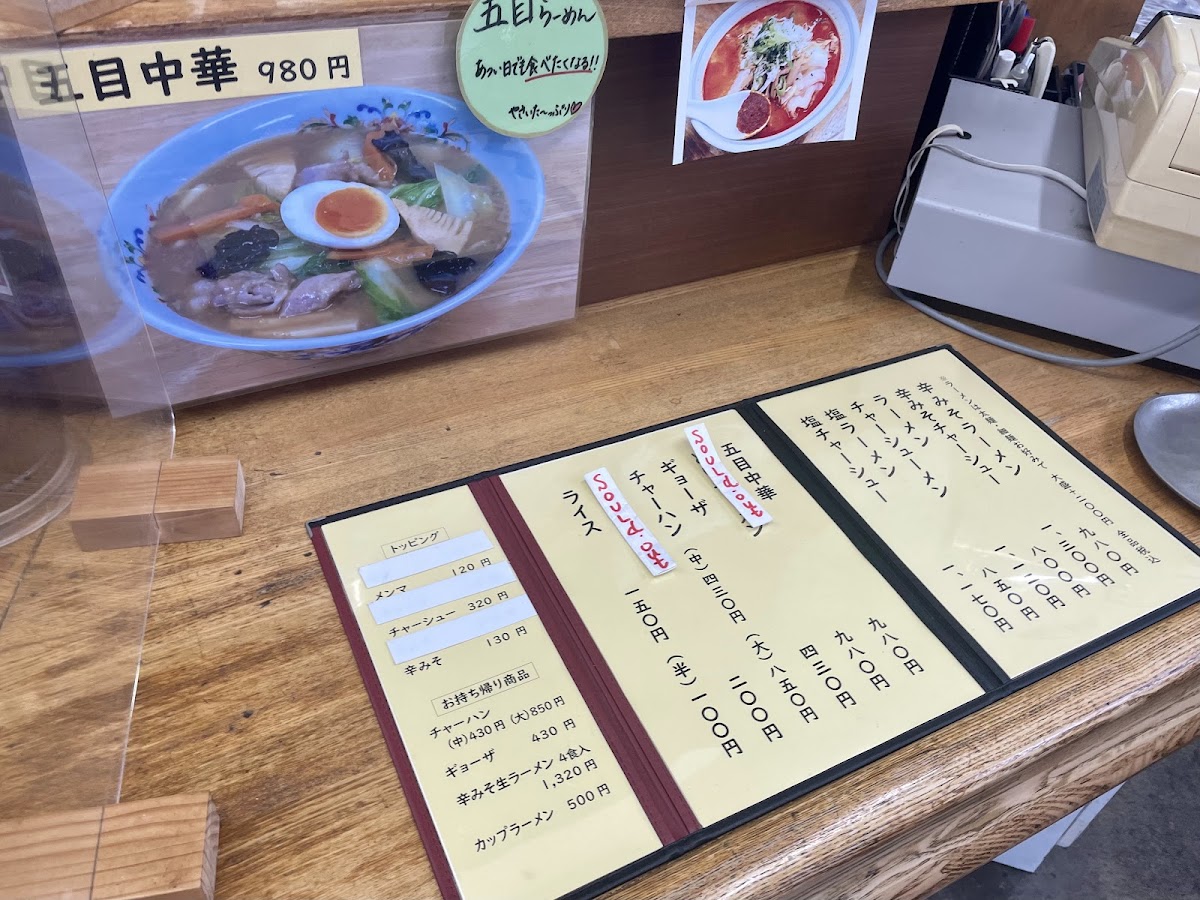 五目中華 980円
五目らーめん
あつい日でも食べたくなる!!
やさいた〜っぷり♡
※ラーメンは太麺・細麺お好みで 大盛+二〇〇円 全品税込
辛みそラーメン 九八〇円
辛みそチャーシュー 一、三〇〇円
ラーメン 八〇〇円
チャーシューメン 一、一二〇円
塩ラーメン 八五〇円
塩チャーシュー 一、一七〇円
五目中華 九八〇円
Sould.out
九八〇円
ギョーザ 四三〇円
チャーハン (中)四三〇円 (大)八五〇円
Sould.out
二〇〇円
ライス 一五〇円 (半)一〇〇円
トッピング
メンマ 120円
チャーシュー 320円
辛みそ 130円
お持ち帰り商品
チャーハン
(中)430円 (大)850円
ギョーザ 430円
辛みそ生ラーメン 4食入
1,320円
カップラーメン 500円